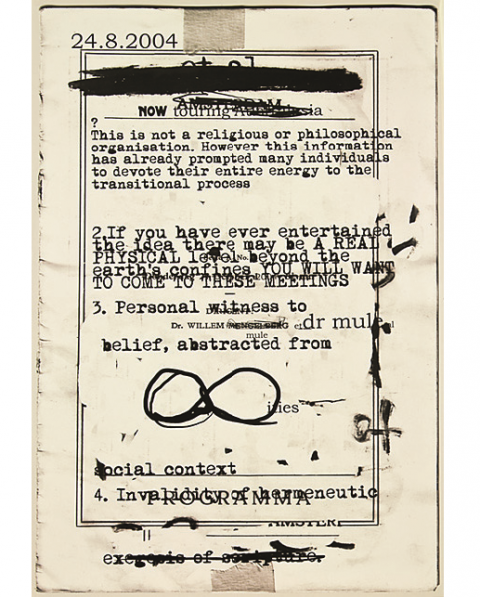 24.8.2004
et al
AMSTERDAM
NOW touring
?
This is not a religious or philosophical
organisation. However this information
has already prompted many individuals
to devote their entire energy to the
transitional process
2.If you have ever entertained
the idea there may be A REAL
PHYSICAL level beyond the
earth's confines YOU WILL WANT
TO COME TO THESE MEETINGS
3. Personal witness to
DIRIGENT:
Dr. WILLEM MENGELBERG et dr mule
mule
belief, abstracted from
ities
social context
4. Invalidity of hermeneutic
PROGRAMMA
exegesis of scripture.